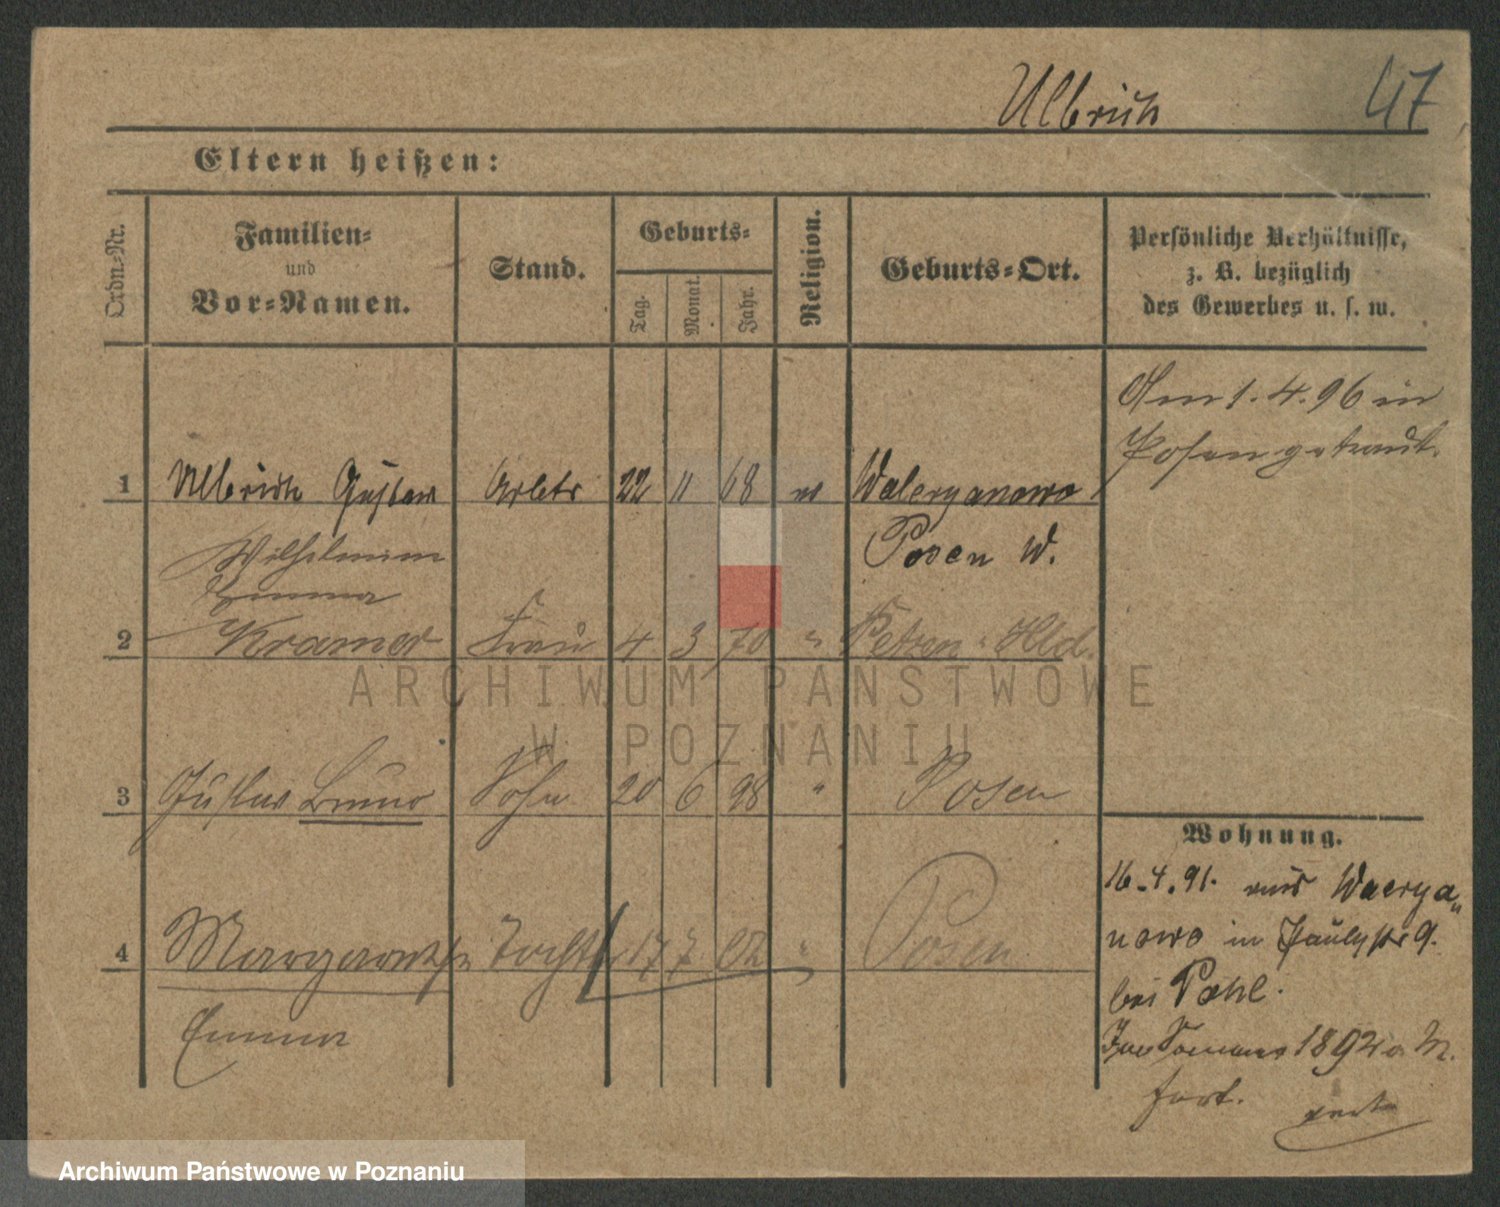 Ulbrich 47
Eltern heißen:
Ordn.-Nr.
Familien-
und
Vor-Namen.
Stand.
Geburts-
Tag.
Monat.
Jahr.
Religion.
Geburts-Ort.
Persönliche Verhältnisse,
z. B. bezüglich
des Gewerbes u. s. w.
Am 1. 4. 96 in
Posen getraut.
1 Ulbrich Gustav Arbtr 22 11 68 ev Waleryanowo
Posen W.
Wilhelmine
Emma
2 Kramer Frau 4 3 70 " Petzen- Hld.
3 Gustav Bruno Sohn 20 6 98 " Posen
4 Margarethe Tochter 17 7 02 " Posen
Emma
Wohnung.
16.4.91. aus Waerya-
nowo in Paulystr 9.
bei Pohl.
Im Sommer 1892 a M.
fort.
ARCHIWUM PAŃSTWOWE
W POZNANIU
Archiwum Państwowe w Poznaniu